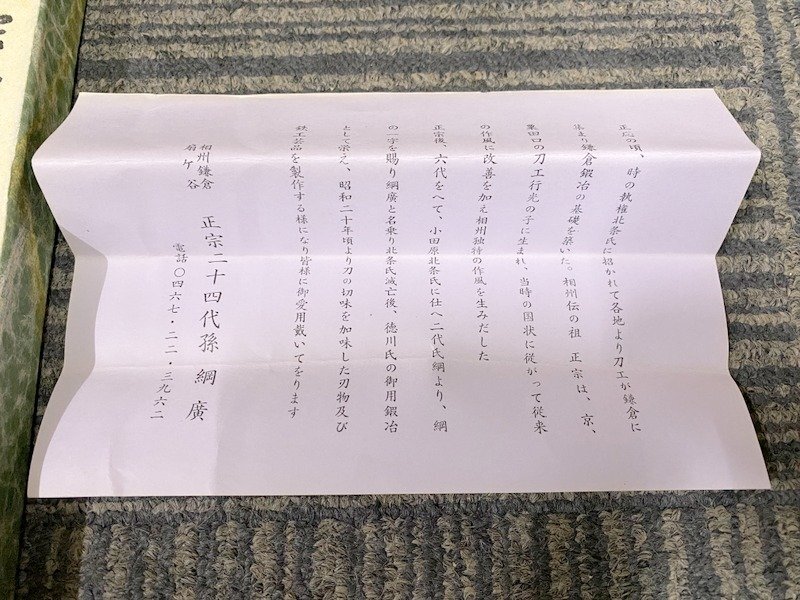 正応の頃、時の執権北条氏に招かれて各地より刀工が鎌倉に
集まり鎌倉鍛冶の基礎を築いた。相州伝の祖 正宗は、京、
粟田口の刀工行光の子に生まれ、当時の国状に従がって従来
の作風に改善を加え相州独特の作風を生みだした
正宗後、六代をへて、小田原北条氏に仕へ二代氏綱より、綱
の一字を賜り綱廣と名乗り北条氏滅亡後、徳川氏の御用鍛冶
として栄え、昭和二十年頃より刀の切味を加味した刃物及び
鉄工芸品を製作する様になり皆様に御愛用戴いてをります
相州鎌倉
扇ヶ谷
正宗二十四代孫 綱廣
電話〇四六七・二二・三九六二